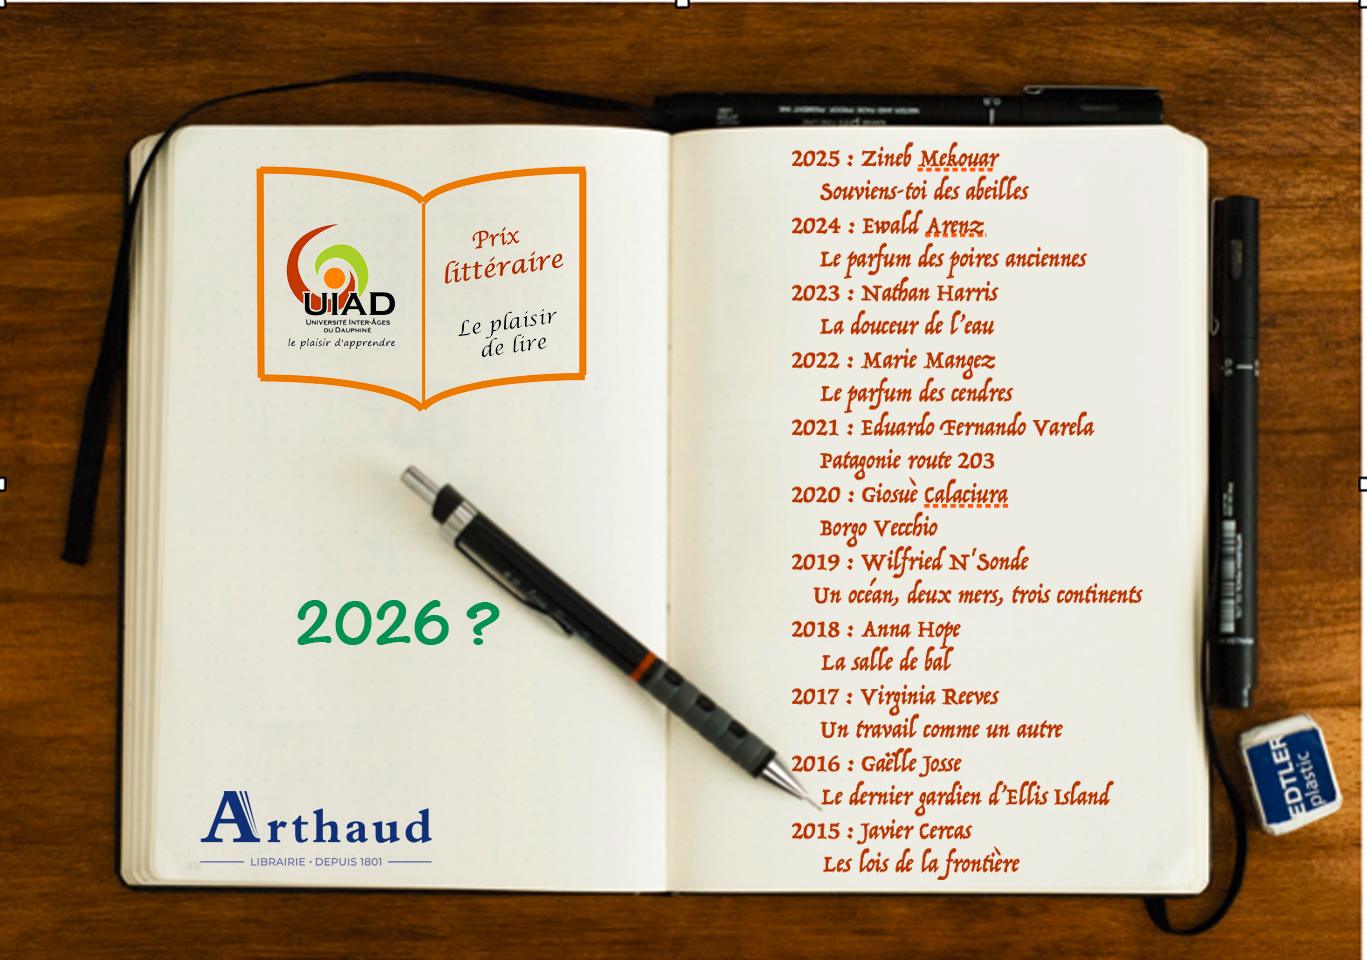 UIAD
UNIVERSITÉ INTER-ÂGES
DU DAUPHINÉ
le plaisir d'apprendre
Prix
littéraire
Le plaisir
de lire
2026 ?
Arthaud
LIBRAIRIE • DEPUIS 1801
2025 : Zineb Mekouar
Souviens-toi des abeilles
2024 : Ewald Arenz
Le parfum des poires anciennes
2023 : Nathan Harris
La douceur de l'eau
2022 : Marie Mangez
Le parfum des cendres
2021 : Eduardo Fernando Varela
Patagonie route 203
2020 : Giosuè Calaciura
Borgo Vecchio
2019 : Wilfried N'Sonde
Un océan, deux mers, trois continents
2018 : Anna Hope
La salle de bal
2017 : Virginia Reeves
Un travail comme un autre
2016 : Gaëlle Josse
Le dernier gardien d'Ellis Island
2015 : Javier Cercas
Les lois de la frontière
EDTLER
plastic